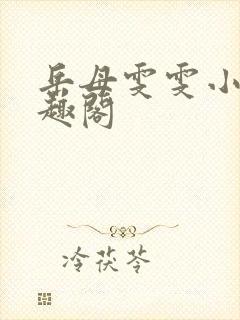 岳母雯雯小
趣阁
冷茯苓